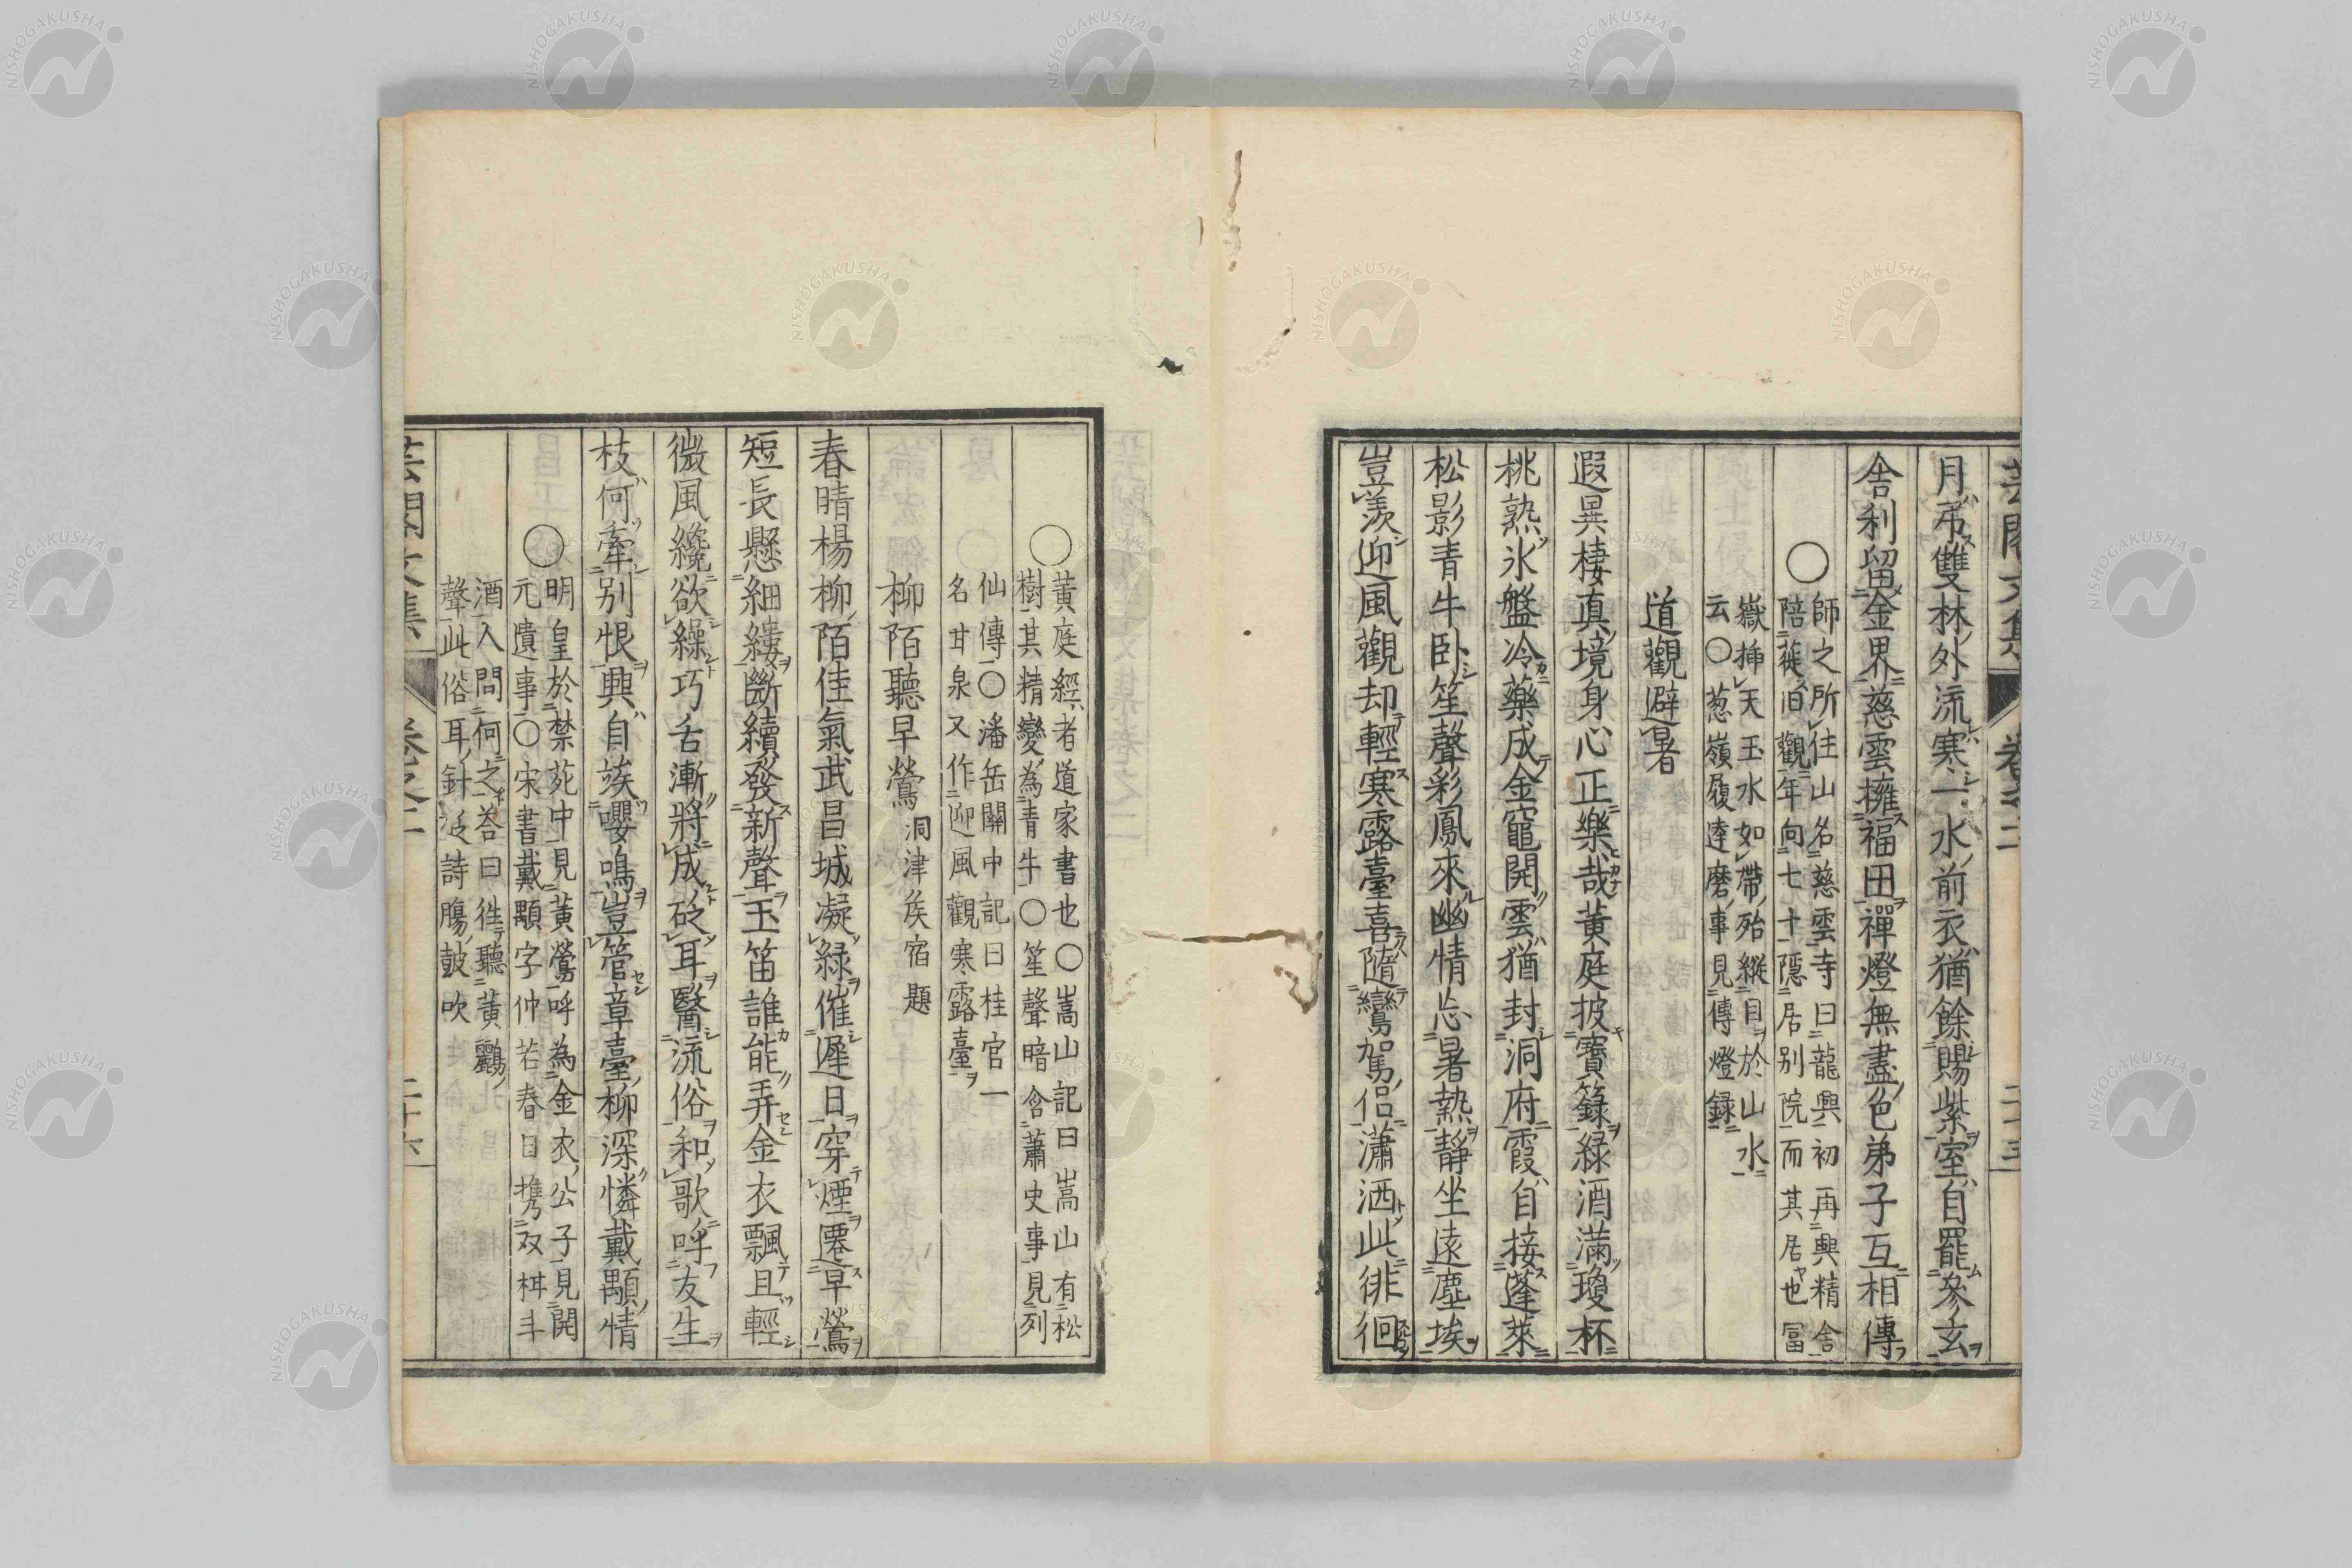 月弔雙林外流寒一水前衣猶餘賜紫室自罷參玄
舎利留金界慈雲擁福田禪燈無盡色弟子互相傳
〇師之所住山名慈雲寺曰龍興初再興精舎
陪蓰旧觀年向七十隱居別院而其居也冨
嶽挿天玉水如帶殆縱目於山水
云〇葱嶺履達磨事見傳燈録
道觀避暑
遐異棲真境身心正樂哉黄庭披寶籙緑酒滿瓊杯
桃熟氷盤冷藥成金竈開雲猶封洞府霞自接蓬萊
松影青牛卧笙聲彩鳳來幽情忘暑熱靜坐遠塵埃
豈羨迎風觀却輕寒露臺喜隨鸞駕侶瀟洒此徘徊
芸閣文集 卷之二
〇黄庭經者道家書也〇嵩山記曰嵩山有松
樹其精變為青牛〇笙聲暗含蕭史事見列
仙傳〇潘岳關中記曰桂官一
名甘泉又作迎風觀寒露臺
柳陌聽早鶯 洞津矦宿題
春晴楊柳陌佳氣武昌城凝緑催遲日穿煙遷早鶯
短長懸細縷斷續發新聲玉笛誰能弄金衣飄且輕
微風纔欲繰巧舌漸將成砭耳醫流俗和歌呼友生
枝何牽別恨興自蔟嚶鳴豈管章臺柳深憐戴顒情
〇明皇於禁苑中見黄鶯呼為金衣公子見開
元遺事〇宋書戴顒字仲若春日携双柑斗
酒人問何之答曰徃聽黄鸝
聲此俗耳針砭詩膓鼓吹
芸閣文集 卷之二 二十六
NISHOGAKUSHA